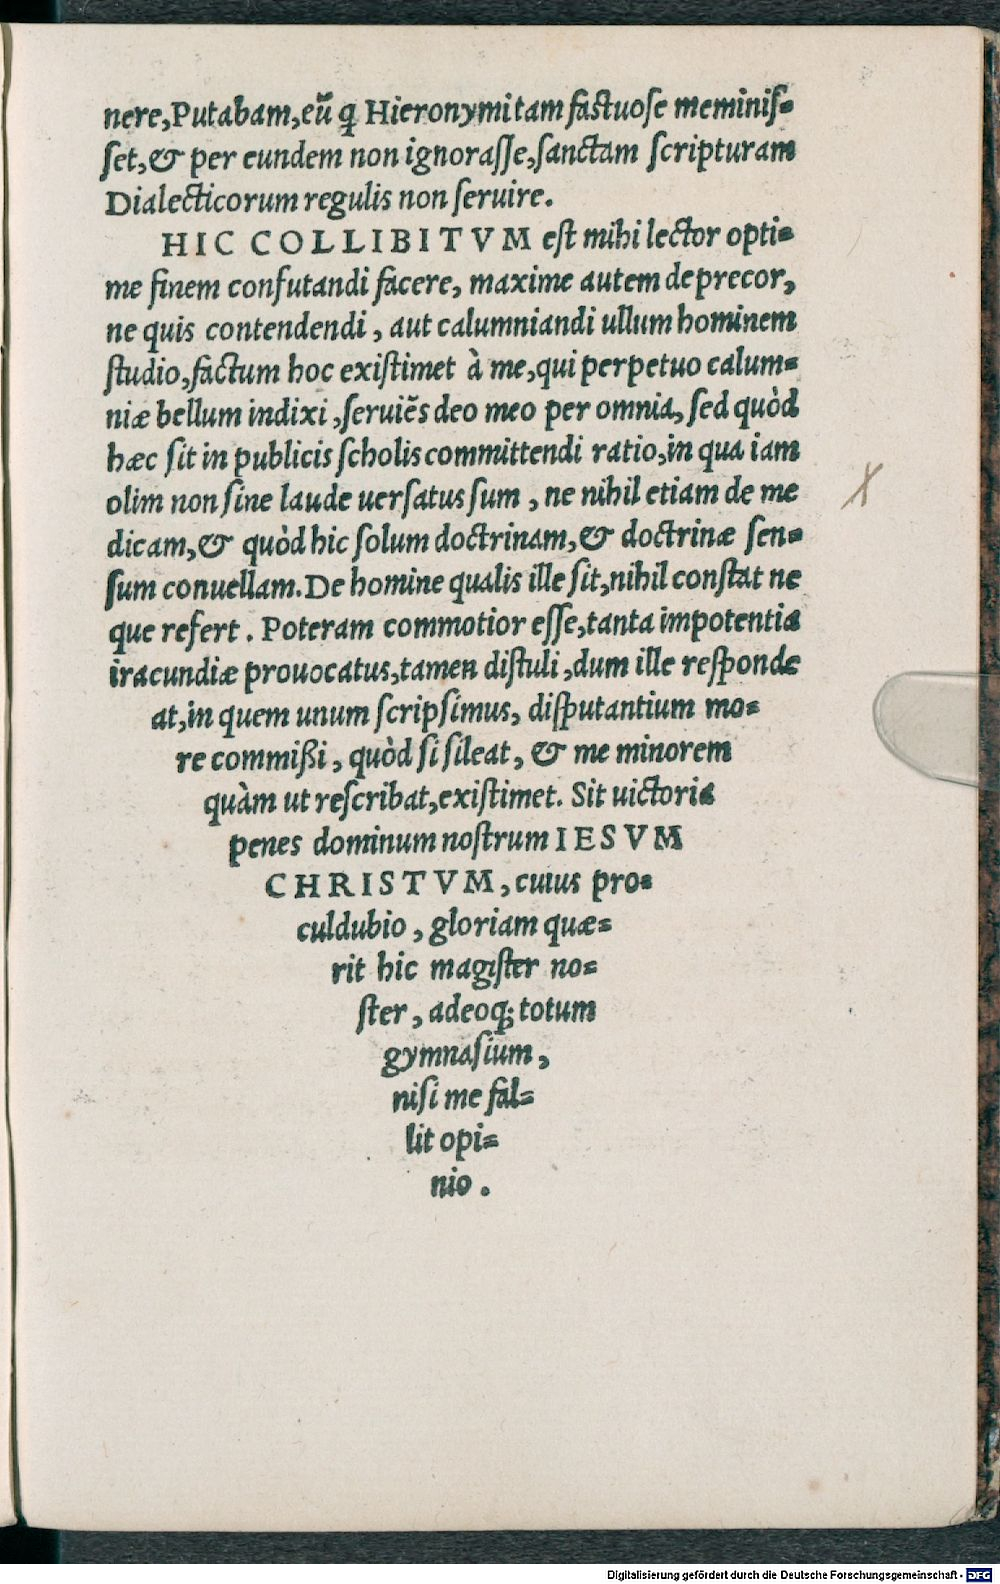 nere,Putabam,eũ q̃ Hieronymi tam factuose meminiſ=
ſet,& per eundem non ignoraſſe,ſanctam ſcripturam
Dialecticorum regulis non ſeruire.
HIC COLLIBITVM eſt mihi lector opti=
me finem confutandi facere, maxime autem deprecor,
ne quis contendendi, aut calumniandi ullum hominem
ſtudio,factum hoc exiſtimet à me,qui perpetuo calum=
niæ bellum indixi,ſeruiẽs deo meo per omnia, ſed quòd
hæc ſit in publicis ſcholis committendi ratio,in qua iam
olim non ſine laude uerſatus ſum, ne nihil etiam de me
dicam,& quòd hic ſolum doctrinam,& doctrinæ ſen=
ſum conuellam.De homine qualis ille ſit,nihil conſtat ne
que refert. Poteram commotior eſſe,tanta impotentia
iracundiæ prouocatus,tamen diſtuli,dum ille reſponde
at,in quem unum ſcripſimus, diſputantium mo=
re commißi, quòd ſi ſileat, & me minorem
quàm ut reſcribat,exiſtimet. Sit uictoria
penes dominum noſtrum IESVM
CHRISTVM, cuius pro=
culdubio, gloriam quæ=
rit hic magiſter no=
ſter, adeoq; totum
gymnaſium,
niſi me fal=
lit opi=
nio.
Digitalisierung gefördert durch die Deutsche Forschungsgemeinschaft - DFG